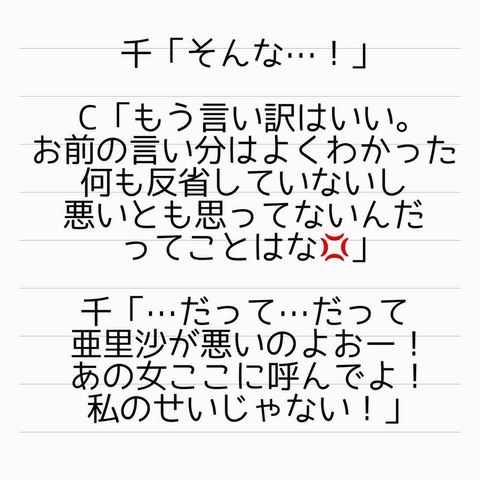 千「そんな…！」
C「もう言い訳はいい。
お前の言い分はよくわかった
何も反省していないし
悪いとも思ってないんだ
ってことはな💢」
千「…だって…だって
亜里沙が悪いのよおー！
あの女ここに呼んでよ！
私のせいじゃない！」